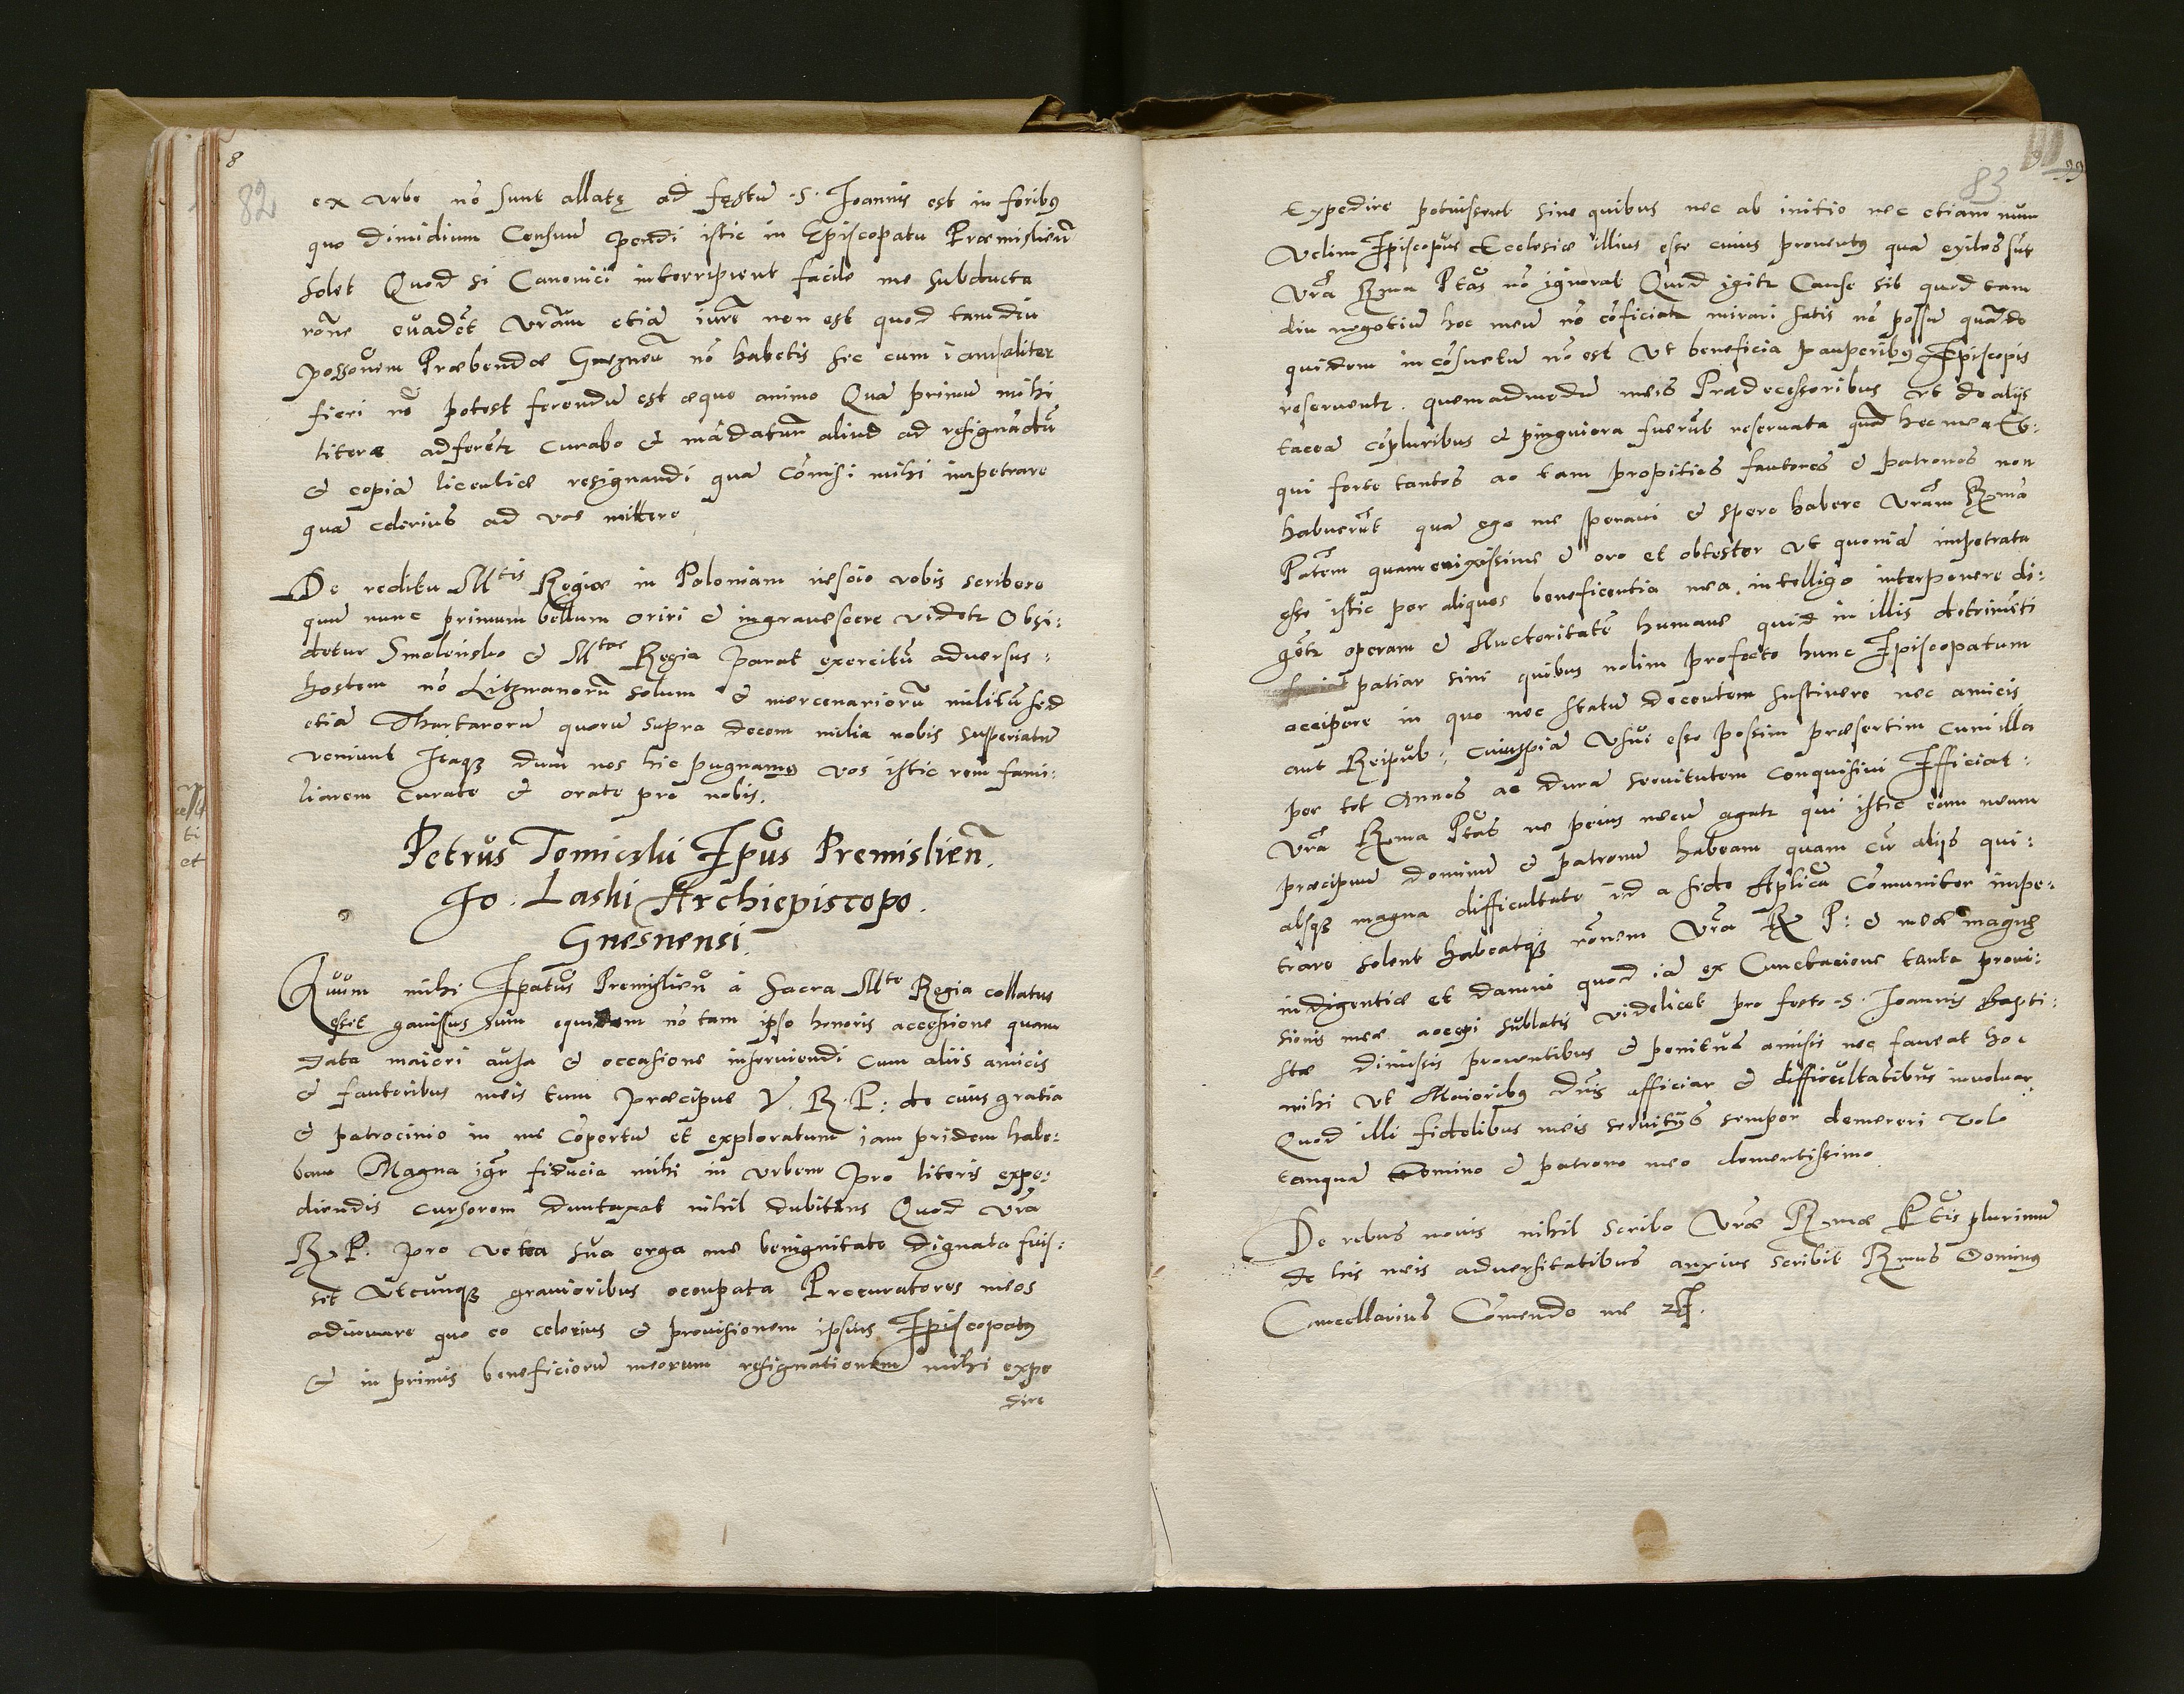 8
82
ex vrbe nō sunt allatę ad fęstū .S. Joannis est in foribꝰ
quo dimidium Censuū pendi istic in Episcopatu Præmisliēn
solet Quod si Canonici interripient facile me subducta
rōne evadēt vrām etiā iurē non est quod tam diu
possōnem Præbendæ Gneznēn nō habetis sec cum
fieri nō potest ferendū est æquo animo Quā primū mihi
literæ adferētr curabo & mādatum aliud ad resignādū
& copiā licentiæ resignandi quā Cōmisi mihi impetrare
quā celerius ad vos mittere
De reditu Mtis Regiæ in Poloniam nescio vobis scribere
quū nunc primum bellum oriri & ingravescere videtr Obsi:
detur Smolensko & Mtas Regia parat exercitū adversus:
hostem nō Litzwanorū solum & mercenariorū militū sed
etiā Thartarorū quorū supra decem milia nobis suppetiatū
veniunt Itaqꝫ dum nos hic pugnamꝰ vos istic rem fami:
liarem curate & orate pro nobis.
Petrus Tomiczki Epūs Premisliēn.
Jo. Laski Archiepiscopo.
Gnesnensi.
Quum mihi Epatus Premisliēn à Sacra Mte Regia collatus
esset gavisus sum equidem nō tam ipso honoris accessione quam
data maiori ausa & occasione inserviendi cum aliis amicis
& fautoribus meis tum præcipue V. R. P: de cuius gratia
& patrocinio in me cōpertū et exploratum iam pridem habe:
bam Magna igr̄ fiducia misi in vrbem pro literis expe:
diendis cursorem duntaxat nihil dubitans Quod vrā
R. P. pro vetea sua erga me benignitate dignata fuis:
set Vtcunqꝫ gravioribus occupata Procuratores meos
adiuvare quo eo celerius & provisionem ipsius Episcopatꝰ
& in primis beneficiorū meorum resignationem mihi expe
dire
83
99
Expedire potuissent sine quibus nec ab initio nec etiam num
Velim Episcopus Ecclesiæ illius esse cuius proventꝰ quā exiles sūt
Vrā Rma Ptas nō ignorat Quid igitr Causæ sit quod tam
diu negotiū hoc meū nō cōficiatr mirari satis nō possū quādo
quidem incōsuetū nō est Vt beneficia pauperibꝰ Episcopis
reserventr. quemadmodū meis Prædecessoribus vt de alijs
taceā cōpluribus & pinguiora fuerūt reservata quā hec mea
qui forte tantos ac tam propitios fautores & patronos non
habuerūt quā ego me speravi & spero habere Vrām Rmā
Patem quam enixissime & oro et obtestor Vt quoniā impetrata
esse istic per aliquos beneficentia mea intelligo interponere di:
gētr operam & Auctoritatē humane quid in illis detrimēti
faciat patiar sini quibus nolim profecto hunc Episcopatum
accipere in quo nec statū decentem sustinere nec amicis
aut Reipub: cuiuspiā Vsui esse possim præsertim cum illa
per tot Annos ac durā servitutem conquisivi Efficiat:
Vrā Rma Ptas ne peius mecū agatr qui istic eam meum
præcipuū dominū & patronū habeam quam cū alijs qui:
absqꝫ magna difficultate id a sede Aplica Comuniter impe:
trare solent habeatqꝫ rōnem Vrā R P: & meæ magnę
indigentiæ et damni quod iā ex Cunctacione tanta provi:
sionis meæ accepi sublatis videlicet pro festo .S. Joannis Bapti:
stæ dimissis proventibus & penitus amissis nec faveat hoc
mihi Vt Maioribꝰ dñis afficiar & difficultatibus involuar.
Quod illi fidelibus meis servitijs semper demereri volo
tanquā Domino & patrono meo clementissimo
De rebus novis nihil scribo Vrāe Rmæ Ptis plurimū
de his meis adversitatibus anxius scribit Rmus Dominꝰ
Cancellarius Cōmendo me